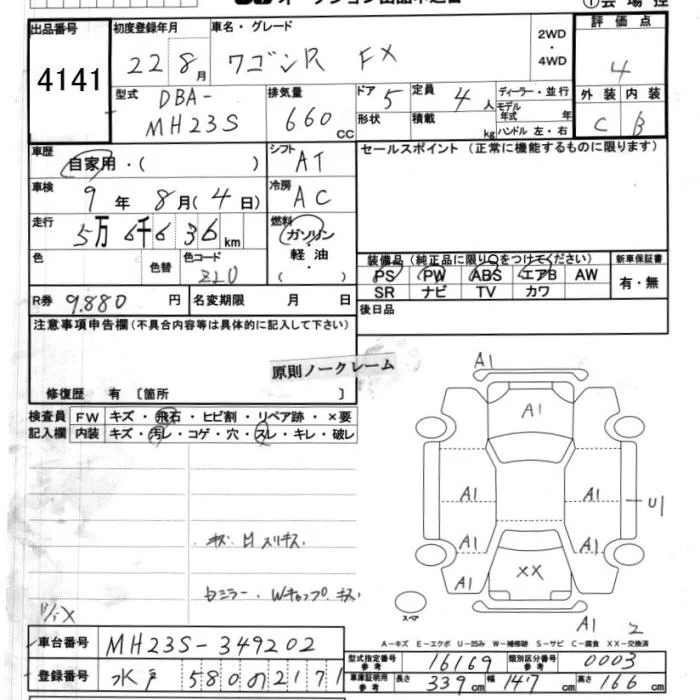 出品番号
4141
初度登録年月
22 8月
車名・グレード
ワゴンR FX
2WD
・
4WD
評価点
4
外装 内装
C B
型式
DBA-
MH23S
排気量
660
CC
ドア 5
定員 4人
ディーラー・並行
モデル
年式 年
形状
積載 kg
ハンドル 左・右
車歴
自家用・( )
シフト
AT
セールスポイント (正常に機能するものに限ります)
車検
9年 8月(4日)
冷房
AC
走行
5万6千636km
燃料
ガソリン
・
軽油
・
( )
色
色替
色コード
ZL0
装備品(純正品に限り○をつけてください)
新車保証書
PS PW ABS エアB AW
SR ナビ TV カワ
有・無
R券 9.880円
名変期限 月 日
後日品
注意事項申告欄(不具合内容等は具体的に記入して下さい)
原則ノークレーム
修復歴 有 〔箇所 〕
検査員 FW キズ・飛石・ヒビ割・リペア跡・×要
記入欄 内装 キズ・汚レ・コゲ・穴・スレ・キレ・破レ
A1
A1
A1 A1
U1
A1 A1
A1
XX
A1
2
スペア
A-キズ E-エクボ U-凹み W-補修跡 S-サビ C-腐食 XX-交換済
車台番号 MH23S-349202
登録番号 水戸 580 の 2171
型式指定番号
参考
16169
類別区分番号
参考
0003
車庫証明用
参考
長さ 339cm 幅 147cm 高さ 166cm